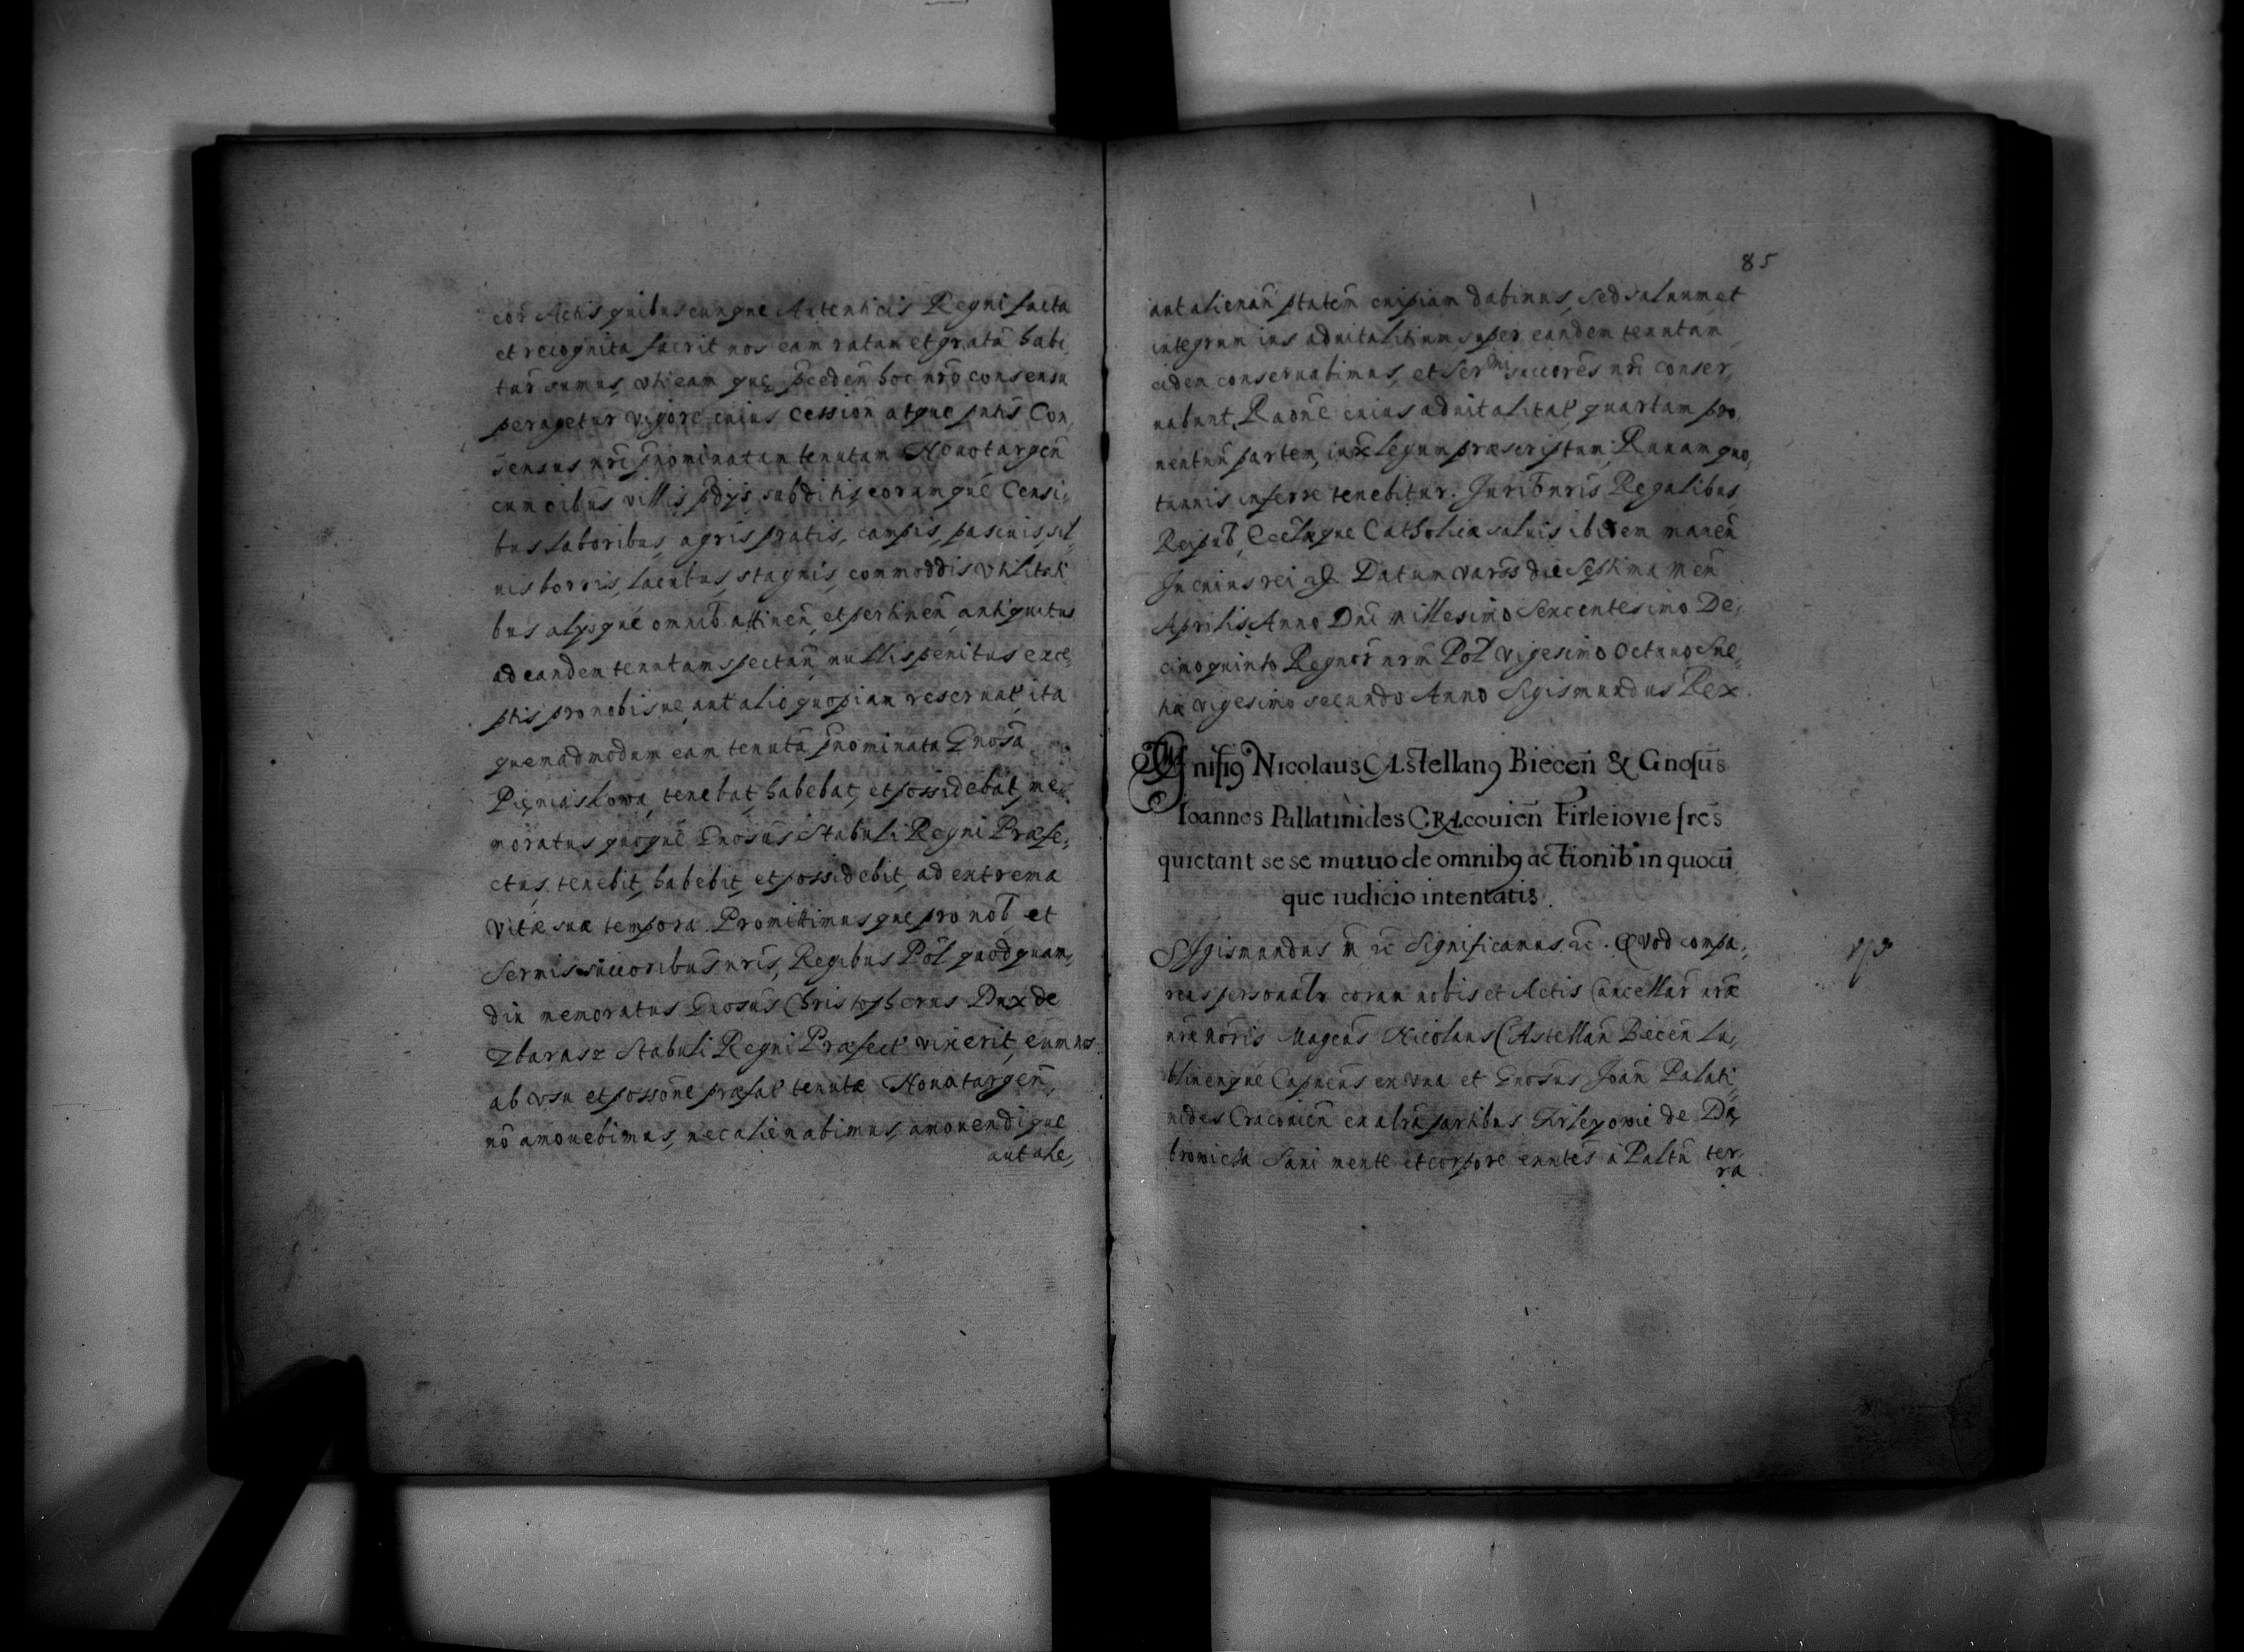 cor Actis quibuscunque Autenticis Regni facta
et recognita fuerit nos eam ratam et gratā habi,
turī sumus, vti eam quę p̄cedeñ hoc nrō consensu
peragetur vigore cuius Cession̄ atque pntīs Con,
sensus nrī p̄nominatam tenutam Nouotargeñ
cum oibus villis p̄dijs subditis, eorumqué Censi,
bus laboribus, agris pratis, campis, pascuis, sil,
uis borris, lacubus, stagnis, commoddis vtilitati
bus alijsqué omnib attineñ, et pertineñ antiquitus
ad eandem tenutam spectañ, nullis penitus exce,
ptis pro nobis ue, aut alio quopiam reseruat, ita
quemadmodum eam tenutā p̄nominata Gnosā
Pięniaskowa, tenebat, habebat, et possidebat, me
moratus quoqué Gnosūs Stabuli Regni Præfe,
ctus, tenebit, habebit, et possidebit, ad extrema
vitæ suæ tempora. Promittimusque pro nob et
Sermīs successoribus nrīs, Regibus Pol quod quam,
diu memoratus Gnosūs Christopherus Dux de
Zbarasz Stabuli Regni Præfect vixerit, eum nos
ab vsu et possōne præfat tenutæ Nouatargeñ
nō amouebimus, nec alienabimus, amouendique
aut alie,
85
aut alienañ ptatem cuipiam dabimus, sed saluum et
integrum ius aduitalitium super eandem tenutam
eidem conseruabimus, et Sermi succorēs nrī conser,
uabunt. Raōne cuius aduitalitat quartam pro,
uentuū partem, iuxta legum præscriptum, Rauam quo,
tannis inferre tenebitur. Jurib nrīs Regalibus,
Reipub, Ecclæque Catholicæ saluis ibidem maneñ
In cuius rei Datum Vars die Septima Meñ
Aprilis Anno Dni Millesimo Sexcentesimo De,
cimo quinto Regnor nrm Pol vigesimo Octauo Sue,
tiæ vigesimo secundo Anno Sigismundus Rex
Mgnificq Nicolaus CAstellanq Bieceñ & Gnosus
Ioannes Pallatinides CRAcouieñ Firleiovie fres
quietant se se mutuo de omnibq actionib in quocū
que iudicio intentatis.
Sigismundus m̄ &c Significamus &c. Quod compa,
rens personalr coram nobis et Actis Cancellar nræ
Magcus Nicolaus CAstellañ Bieceñ Lu,
blinenqué Capneus ex vna et Gnosus Joañ Palati,
nides Cracouieñ ex altra partibus Firleyowie de Dą
browicza Sani mente et corpore exntes à Paltu ter,
ra